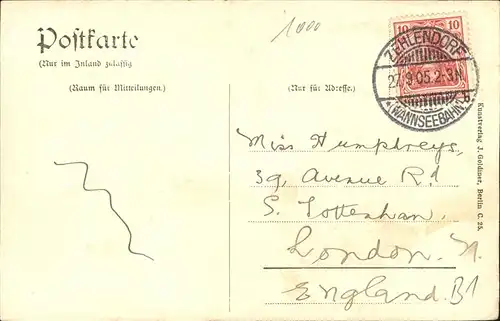 Postkarte
(Nur im Inland zulässig
(Raum für Mitteilungen.)
1000
(Nur für Adresse.)
10 10
ZEHLENDORF
27.9.05.2-3N.
*(WANNSEEBAHN)b.
Miss Humphreys,
39, Avenue Rd
S. Tottenham.
London. N.
England. B1
Kunstverlag J. Goldiner, Berlin C. 25.